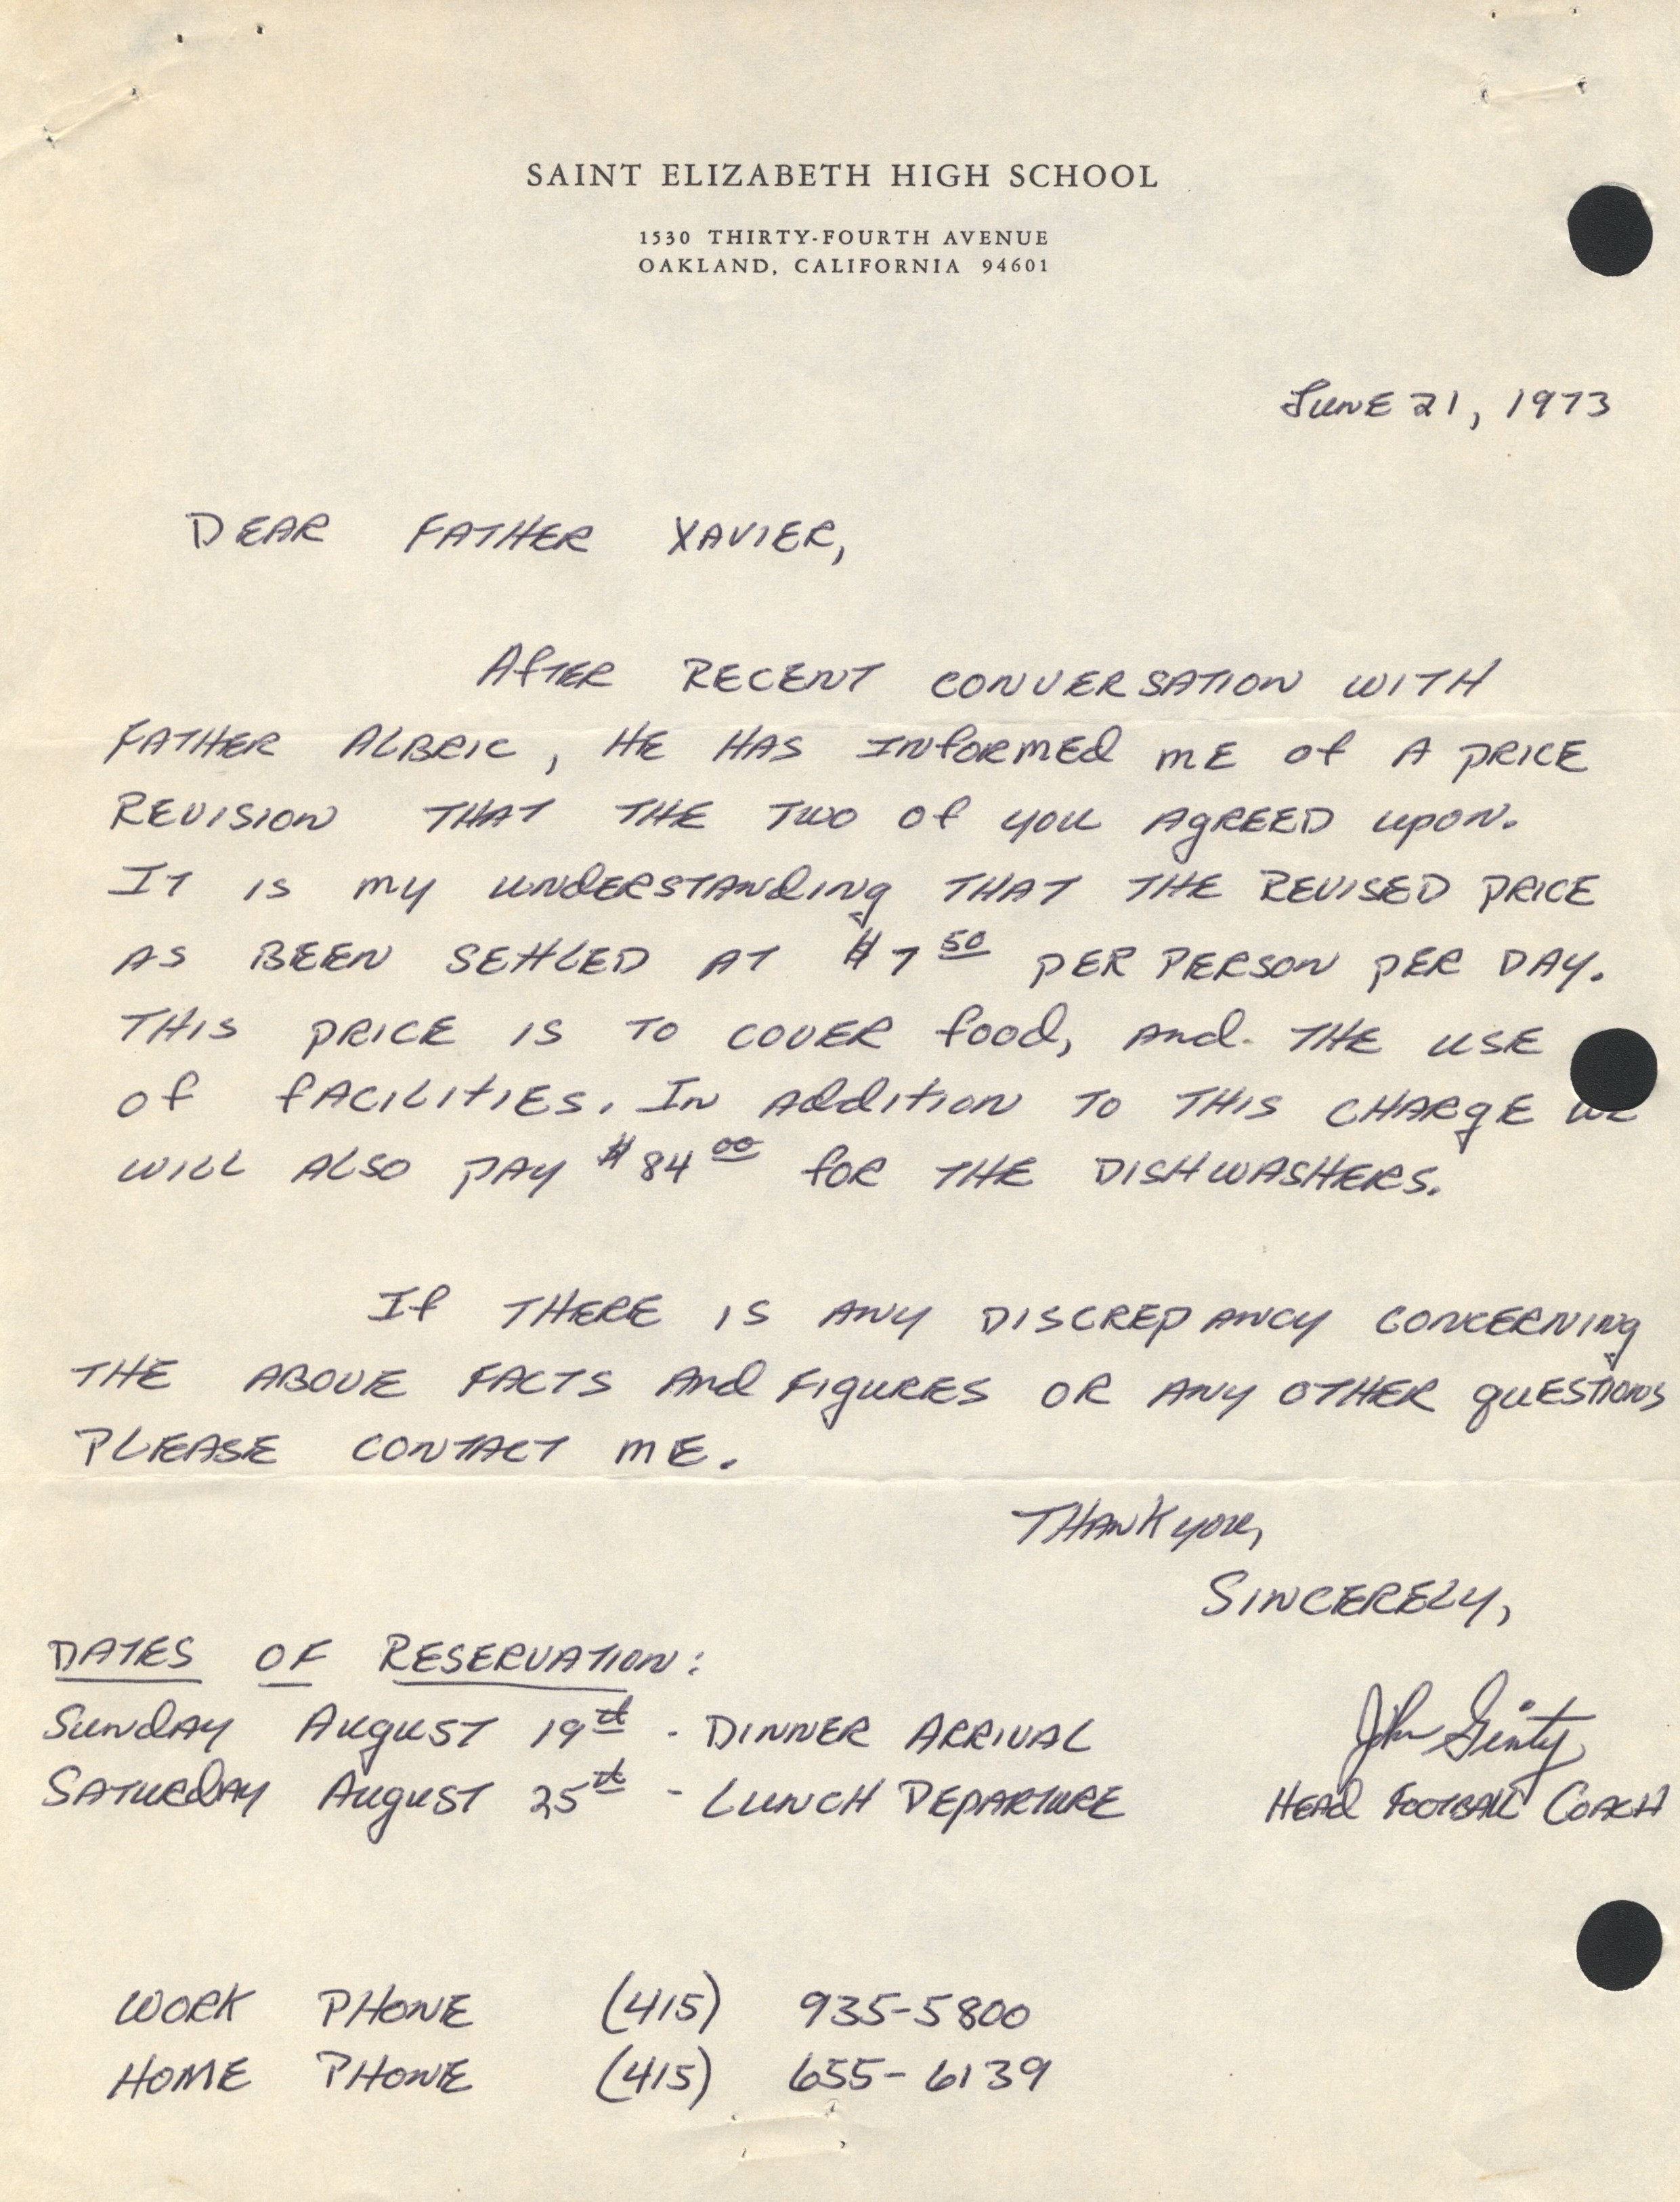 SAINT ELIZABETH HIGH SCHOOL
1530 THIRTY-FOURTH AVENUE
OAKLAND, CALIFORNIA 94601
JUNE 21, 1973
DEAR FATHER XAVIER,
AFTER RECENT CONVERSATION WITH
FATHER ALBRIC, HE HAS INFORMED ME OF A PRICE
REVISION THAT THE TWO OF YOU AGREED UPON.
IT IS MY UNDERSTANDING THAT THE REVISED PRICE
AS BEEN SETTLED AT $7 50 PER PERSON PER DAY.
THIS PRICE IS TO COVER FOOD, AND THE USE
OF FACILITIES. IN ADDITION TO THIS CHARGE WE
WILL ALSO PAY $84 00 FOR THE DISHWASHERS.
IF THERE IS ANY DISCREPANCY CONCERNING
THE ABOVE FACTS AND FIGURES OR ANY OTHER QUESTIONS
PLEASE CONTACT ME.
THANK YOU,
SINCERELY,
DATES OF RESERVATION:
SUNDAY AUGUST 19th - DINNER ARRIVAL
John Ginty
SATURDAY AUGUST 25th - LUNCH DEPARTURE
HEAD FOOTBALL COACH
WORK PHONE (415) 935-5800
HOME PHONE (415) 655-6139